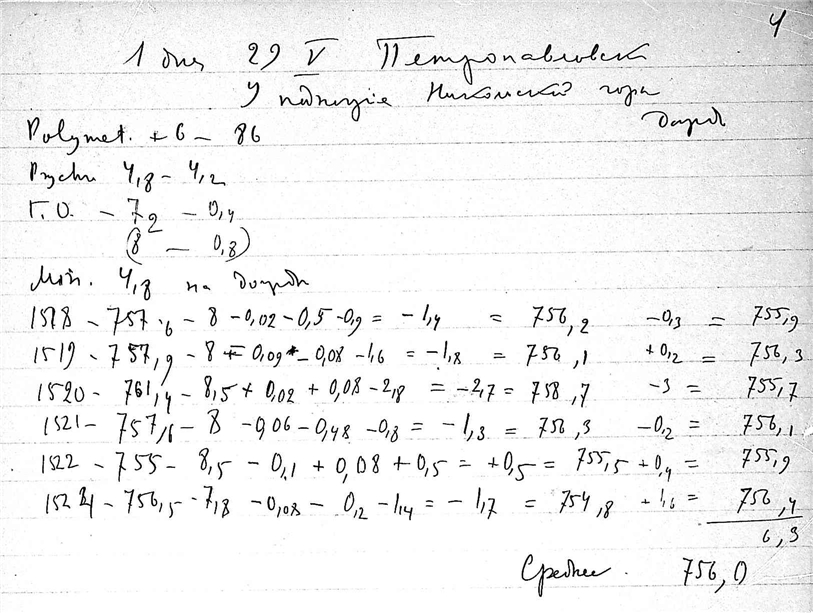 4
1 дня 29 V Петропавловск
У подножіе Никольской горы
Polymet. + 6 – 86
Psychr 4,8 – 4,2
Г. О. – 72 – 0,4
(8 – 0,8)
4,8 на
1518 – 757,6 – 8 – 0,02 – 0,5 – 0,9 = – 1,4 = 756,2 – 0,3 = 755,9
1519 – 757,9 – 8 – 0,09 – 0,08 – 1,6 = – 1,8 = 756,1 + 0,2 = 756,3
1520 – 761,4 – 8,5 + 0,02 + 0,08 – 2,8 = – 2,7 = 758,7 – 3 = 755,7
1521 – 757,6 – 8 – 0,06 – 0,48 – 0,8 = – 1,3 = 756,3 – 0,2 = 756,1
1522 – 755 – 8,5 – 0,1 + 0,08 + 0,5 = + 0,5 = 755,5 + 0,4 = 755,9
1524 – 756,5 – 7,8 – 0,08 – 0,2 – 1,4 = – 1,7 = 754,8 + 1,6 = 756,4
6,3
Среднее . 756,0